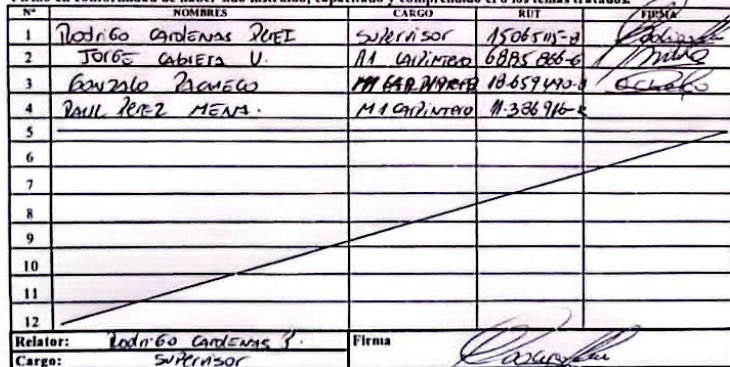 Firmo en conformidad de haber sido instruido, capacitado y comprendido el o los temas tratados.
N° NOMBRES CARGO RUT FIRMA
1 Rodrigo CARDENAS PEREZ Supervisor
2 JORGE CABRERA V. M1 CARPINTERO 6885866-6
3 GONZALO PACHECO M1 CARPINTERO
4 RAUL PEREZ MENA. M1 CARPINTERO
5
6
7
8
9
10
11
12
Relator: Rodrigo CARDENAS P. Firma
Cargo: Supervisor